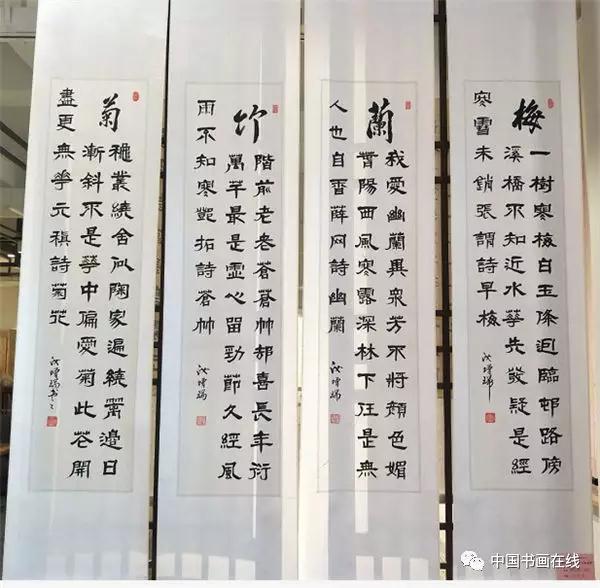 梅
一樹寒梅白玉條迥臨邨路傍
溪橋不知近水華先發疑是經
寒雪未銷張謂詩早梅
蘭
我愛幽蘭異衆芳不將顏色媚
春陽西風寒露深林下任是無
人也自香薛网詩幽蘭
竹
階前老老蒼蒼竹却喜長年衍
萬竿最是虛心留勁節久經風
雨不知寒鄧拓詩蒼竹
菊
穐叢繞舍似陶家遍繞籬邊日
漸斜不是華中偏愛菊此花開
盡更無華元稹詩菊花
中国书画在线